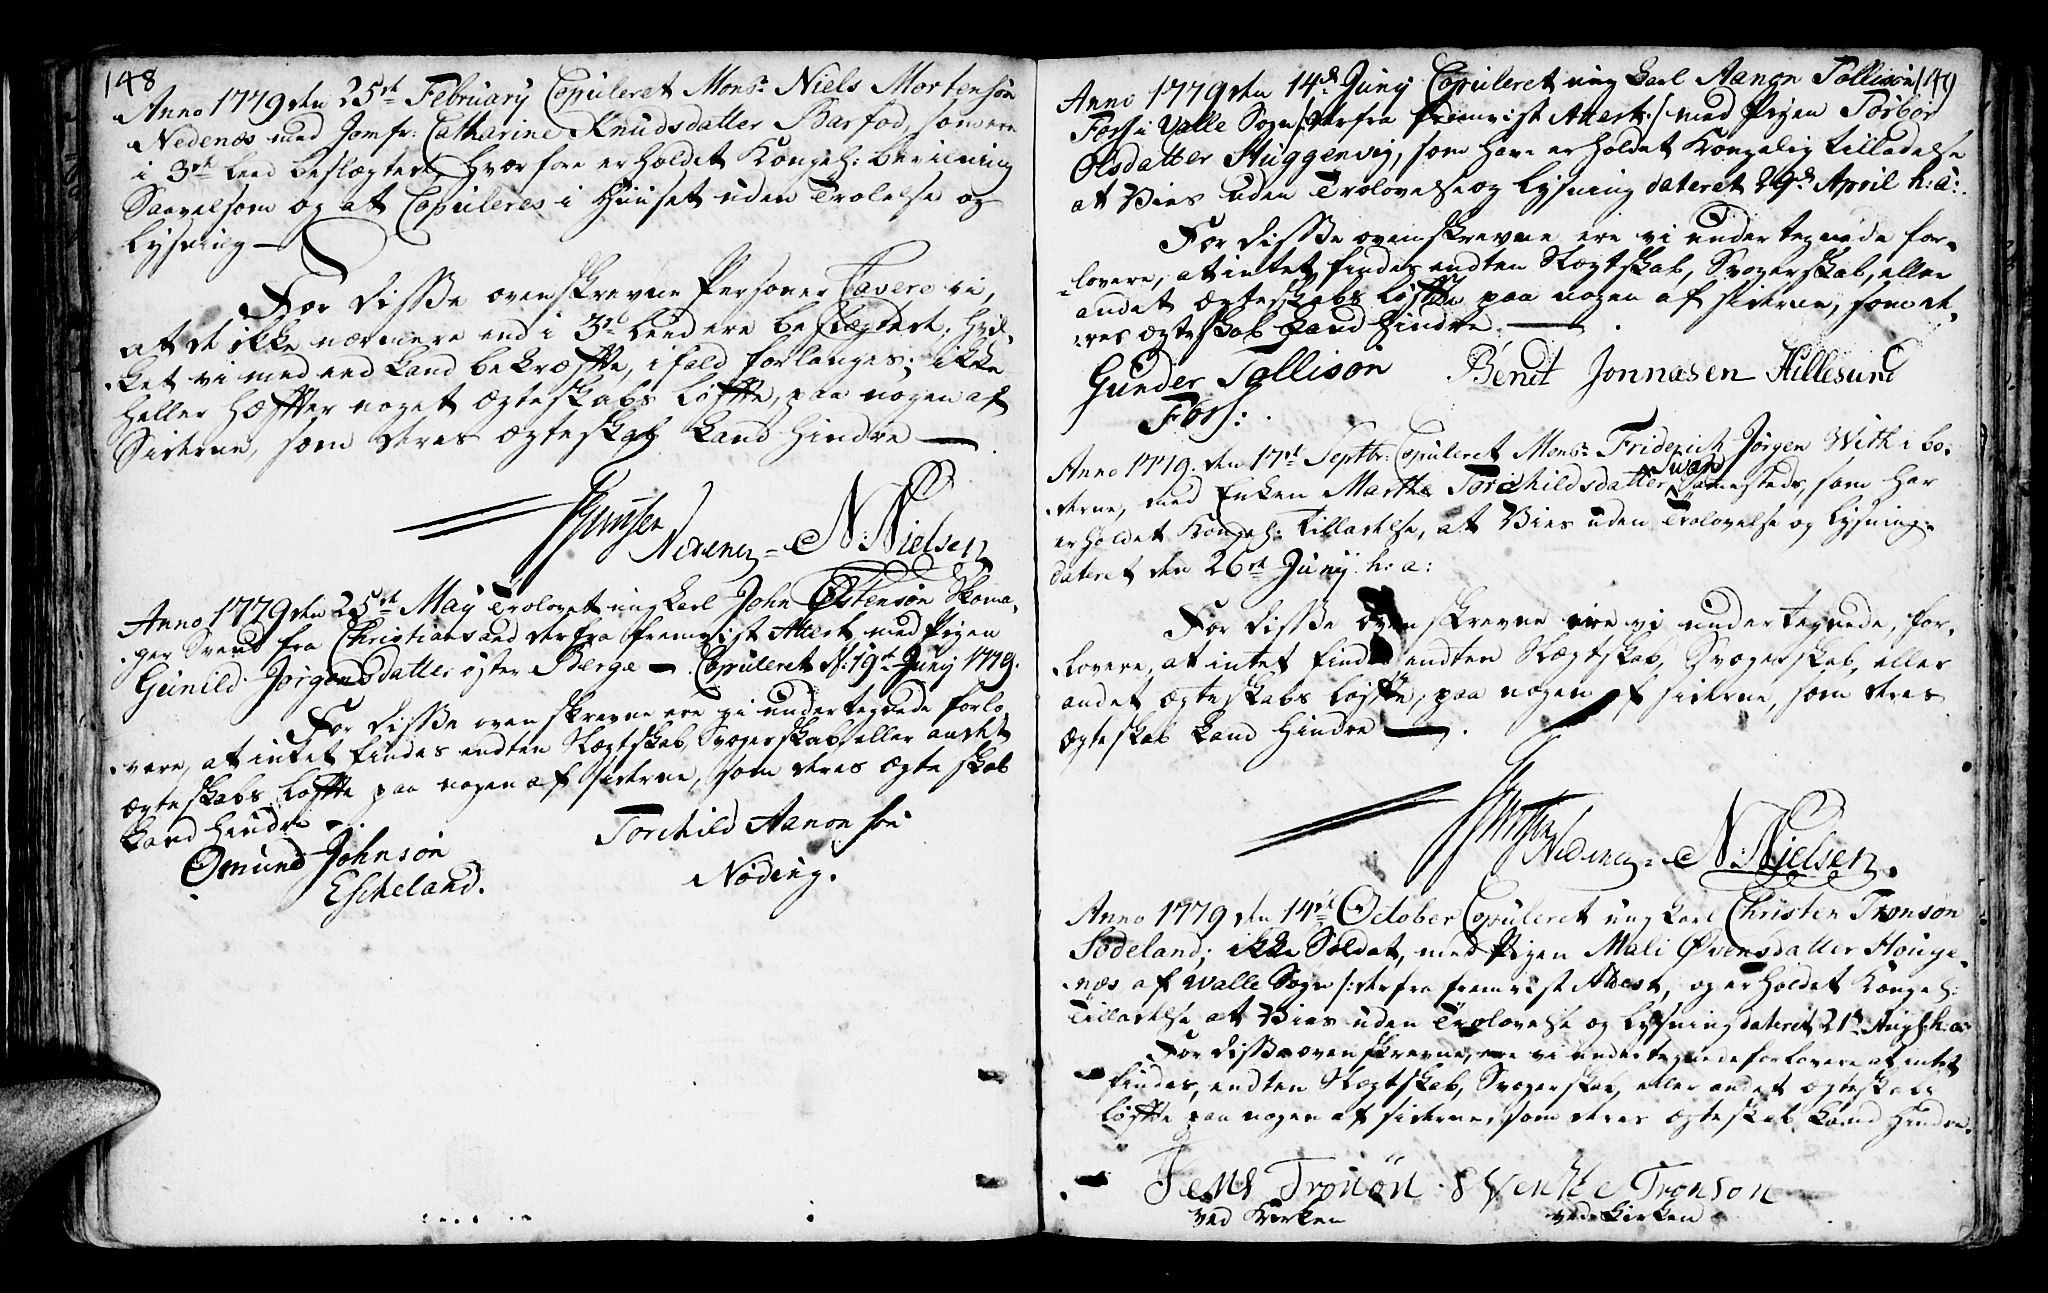 148
Anno 1779 den 25de February Copuleret Monsr: Niels Mortensøn
Nedenæs med Jomfr: Catharine Knudsdatter Barfod, som ere
i 3de Leed beslægtede, hvorfore erholdet Kongel: bevilning
Saavelsom og at Copuleres i Huuset uden Trolovelse og
Lysning —
For disse ovenskrevne Personer Cavere vi,
at de ikke nærmere end i 3de Leed ere beslægtede, hvil-
ket vi med eed kand bekræfte, ifald forlanges; ikke
heller hæfter noget ægteskabs Løfte, paa nogen af
Siderne, som deres ægteskab kand hindre —
Nedenes = N: Nielsen
Anno 1779 den 25de May Trolovet ung karl John Østensøn Skoma-
ger Svend fra Christiansand derfra fremvist Attest med Pigen
Gunild Jørgensdatter øster Berge — Copuleret d: 19de Juny 1779.
For disse ovenskrevne ere vi undertegnede forlo-
vere, at intet findes endten Slægtskab, Svogerskab eller andet
ægteskabs Løfte paa nogen af siderne, som deres ægteskab
kand hindre —
Omund Johnsøn Torchild Aanon søn
Escheland. Nøding.
149
Anno 1779 den 14de Juny Copuleret ung karl Aanon Tallisøn
Foss i Valle Sogn /: derfra fremvist Attest :/ med Pigen Torbor
Olsdatter Stuggenvig, som have erholdet Kongelig tilladelse
at Vies uden Trolovelse og Lysning dateret 29de April h: a:
For disse ovenskrevne ere vi undertegnede for-
lovere, at intet findes endten Slægtskab, Svogerskab, eller
andet ægteskabs Løfte paa nogen af siderne, som de-
res ægteskab kand hindre. —
Gunder Tallison Bendt Jonnasen Hillesund
Foss:
Anno 1779. den 17de Septbr: Copuleret Monsr: Friderich Jørgen With i bo-
derne, med Enken Marthe Torchildsdatter Svane sammesteds, som har
erholdet Kongel: tilladelse, at Vies uden Trolovelse og Lysning
dateret den 26de Juny h: a:
For disse ovenskrevne ere vi undertegnede, for-
lovere, at intet findes endten Slægtskab, Svogerskab, eller
andet ægteskabs Løfte, paa nogen af siderne, som deres
ægteskab kand hindre —.
Nedenes = N: Nielsen.
Anno 1779 den 14de October Copuleret ung karl Christen Tronson
Sødeland; ikke Soldat, med Pigen Mali Øvensdatter Houge-
næs af Valle Sogn /: derfra fremvist Attest, og erholdet Kongel:
Tilladelse at Vies uden Trolovelse og Lysning dateret 21de Aug: h: a:
For disse ovenskrevne, ere vi undertegnede forlovere at intet
findes, endten Slægtskab, Svogerskab, eller andet ægteskabs
Løfte paa nogen af siderne, som deres ægteskab kand hindre.
Jens Tronøn Svenke Tronson
ved Kirken ved Kirken